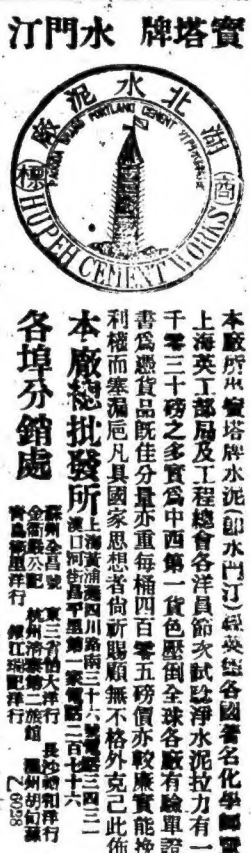 寶塔牌 水門汀
湖北水泥廠
商標
PAGODA BRAND PORTLAND CEMENT
HUPEH CEMENT WORKS
本廠所出寶塔牌水泥(卽水門汀)經英德各國著名化學師曁
上海英工部局及工程總會各洋員節次試騐淨水泥拉力有一
千零三十磅之多實爲中西第一貨色壓倒全球各廠有驗單證
書爲憑貨品旣佳分量亦重每桶四百零五磅價亦較廉實能挽
利權而塞漏巵凡具國家思想者倘祈賜顧無不格外克己此佈
本廠總批發所
上海黃浦灘四川路南三十六號電話三四三一
漢口河街昌平里第一家電話二百七十六
各埠分銷處
蘇州全昌號 東三省怡大洋行 長沙 和洋行
金衢嚴公記 杭州清泰第二旅館 溫州胡旬蘇
靑島 里洋行 鎭江瑞記洋行
Z6028